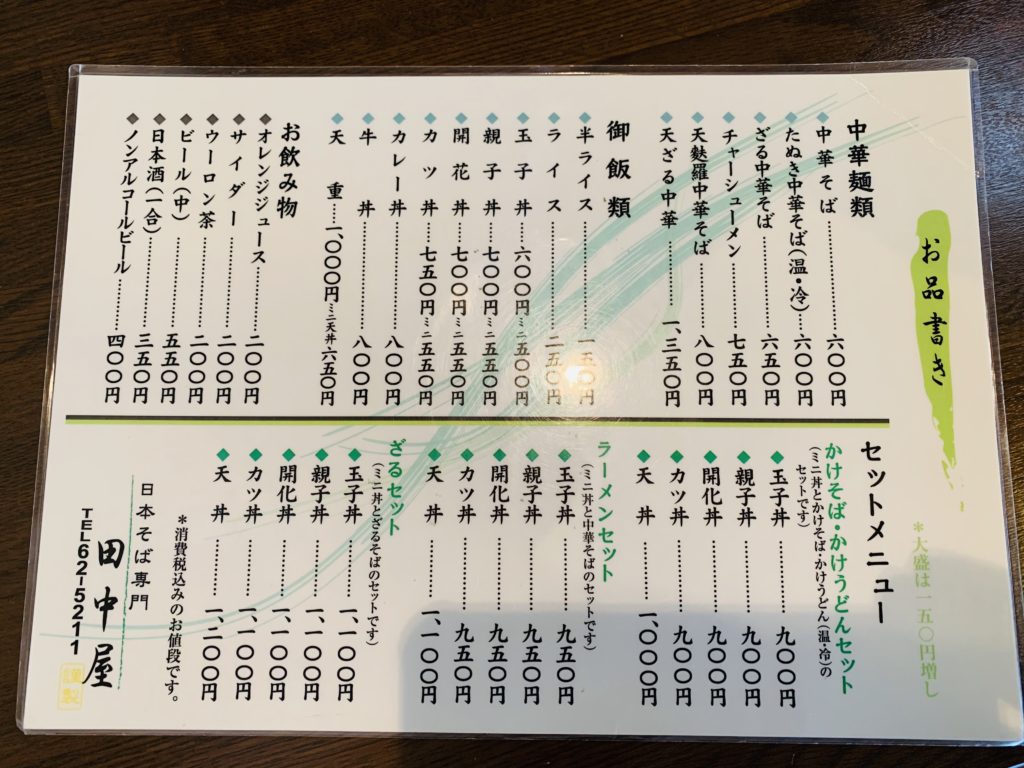 お品書き
＊大盛は一五〇円増し
中華麺類
◆中華そば…………六〇〇円
◆たぬき中華そば(温・冷)…六〇〇円
◆ざる中華そば…………六五〇円
◆チャーシューメン…………七五〇円
◆天麩羅中華そば…………八〇〇円
◆天ざる中華…………一、三五〇円
御飯類
◆半ライス…………一五〇円
◆ライス…………二五〇円
◆玉子丼…六〇〇円…ミニ五〇〇円
◆親子丼…七〇〇円…ミニ五五〇円
◆開花丼…七〇〇円…ミニ五五〇円
◆カツ丼…七五〇円…ミニ五五〇円
◆カレー丼…………八〇〇円
◆牛丼…………八〇〇円
◆天重…一、〇〇〇円…ミニ天丼六五〇円
お飲み物
◆オレンジジュース…………二〇〇円
◆サイダー…………二〇〇円
◆ウーロン茶…………二〇〇円
◆ビール(中)…………五五〇円
◆日本酒(一合)…………三五〇円
◆ノンアルコールビール…………四〇〇円
セットメニュー
かけそば・かけうどんセット
(ミニ丼とかけそば・かけうどん(温・冷)の
セットです)
◆玉子丼…………九〇〇円
◆親子丼…………九〇〇円
◆開化丼…………九〇〇円
◆カツ丼…………九〇〇円
◆天丼…………一、〇〇〇円
ラーメンセット
(ミニ丼と中華そばのセットです)
◆玉子丼…………九五〇円
◆親子丼…………九五〇円
◆開化丼…………九五〇円
◆カツ丼…………九五〇円
◆天丼…………一、一〇〇円
ざるセット
(ミニ丼とざるそばのセットです)
◆玉子丼…………一、一〇〇円
◆親子丼…………一、一〇〇円
◆開化丼…………一、一〇〇円
◆カツ丼…………一、一〇〇円
◆天丼…………一、二〇〇円
＊消費税込みのお値段です。
日本そば専門
田中屋
TEL62-5211
謹製